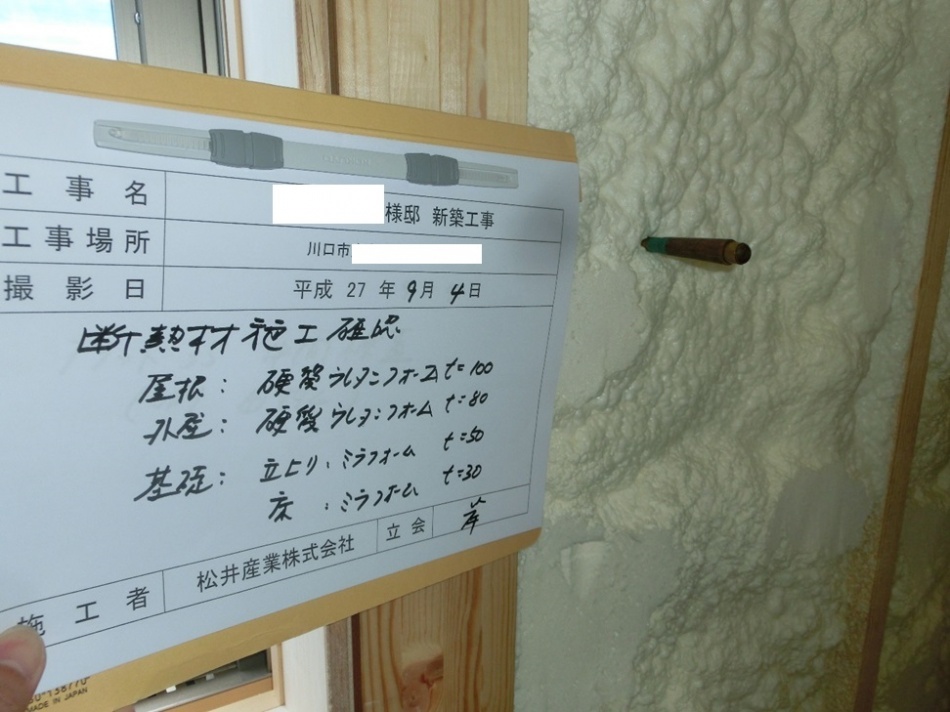 工事名 様邸 新築工事
工事場所 川口市
撮影日 平成 27 年 9月 4日
断熱材施工確認
屋根: 硬質ウレタンフォーム t=100
外壁: 硬質ウレタンフォーム t=80
基礎: 立上り: ミラフォーム t=50
床 : ミラフォーム t=30
施工者 松井産業株式会社 立会 岸
MADE IN JAPAN